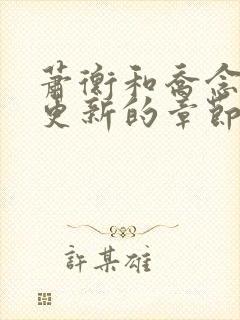 蕭衡和喬念
更新的章節
許某雄